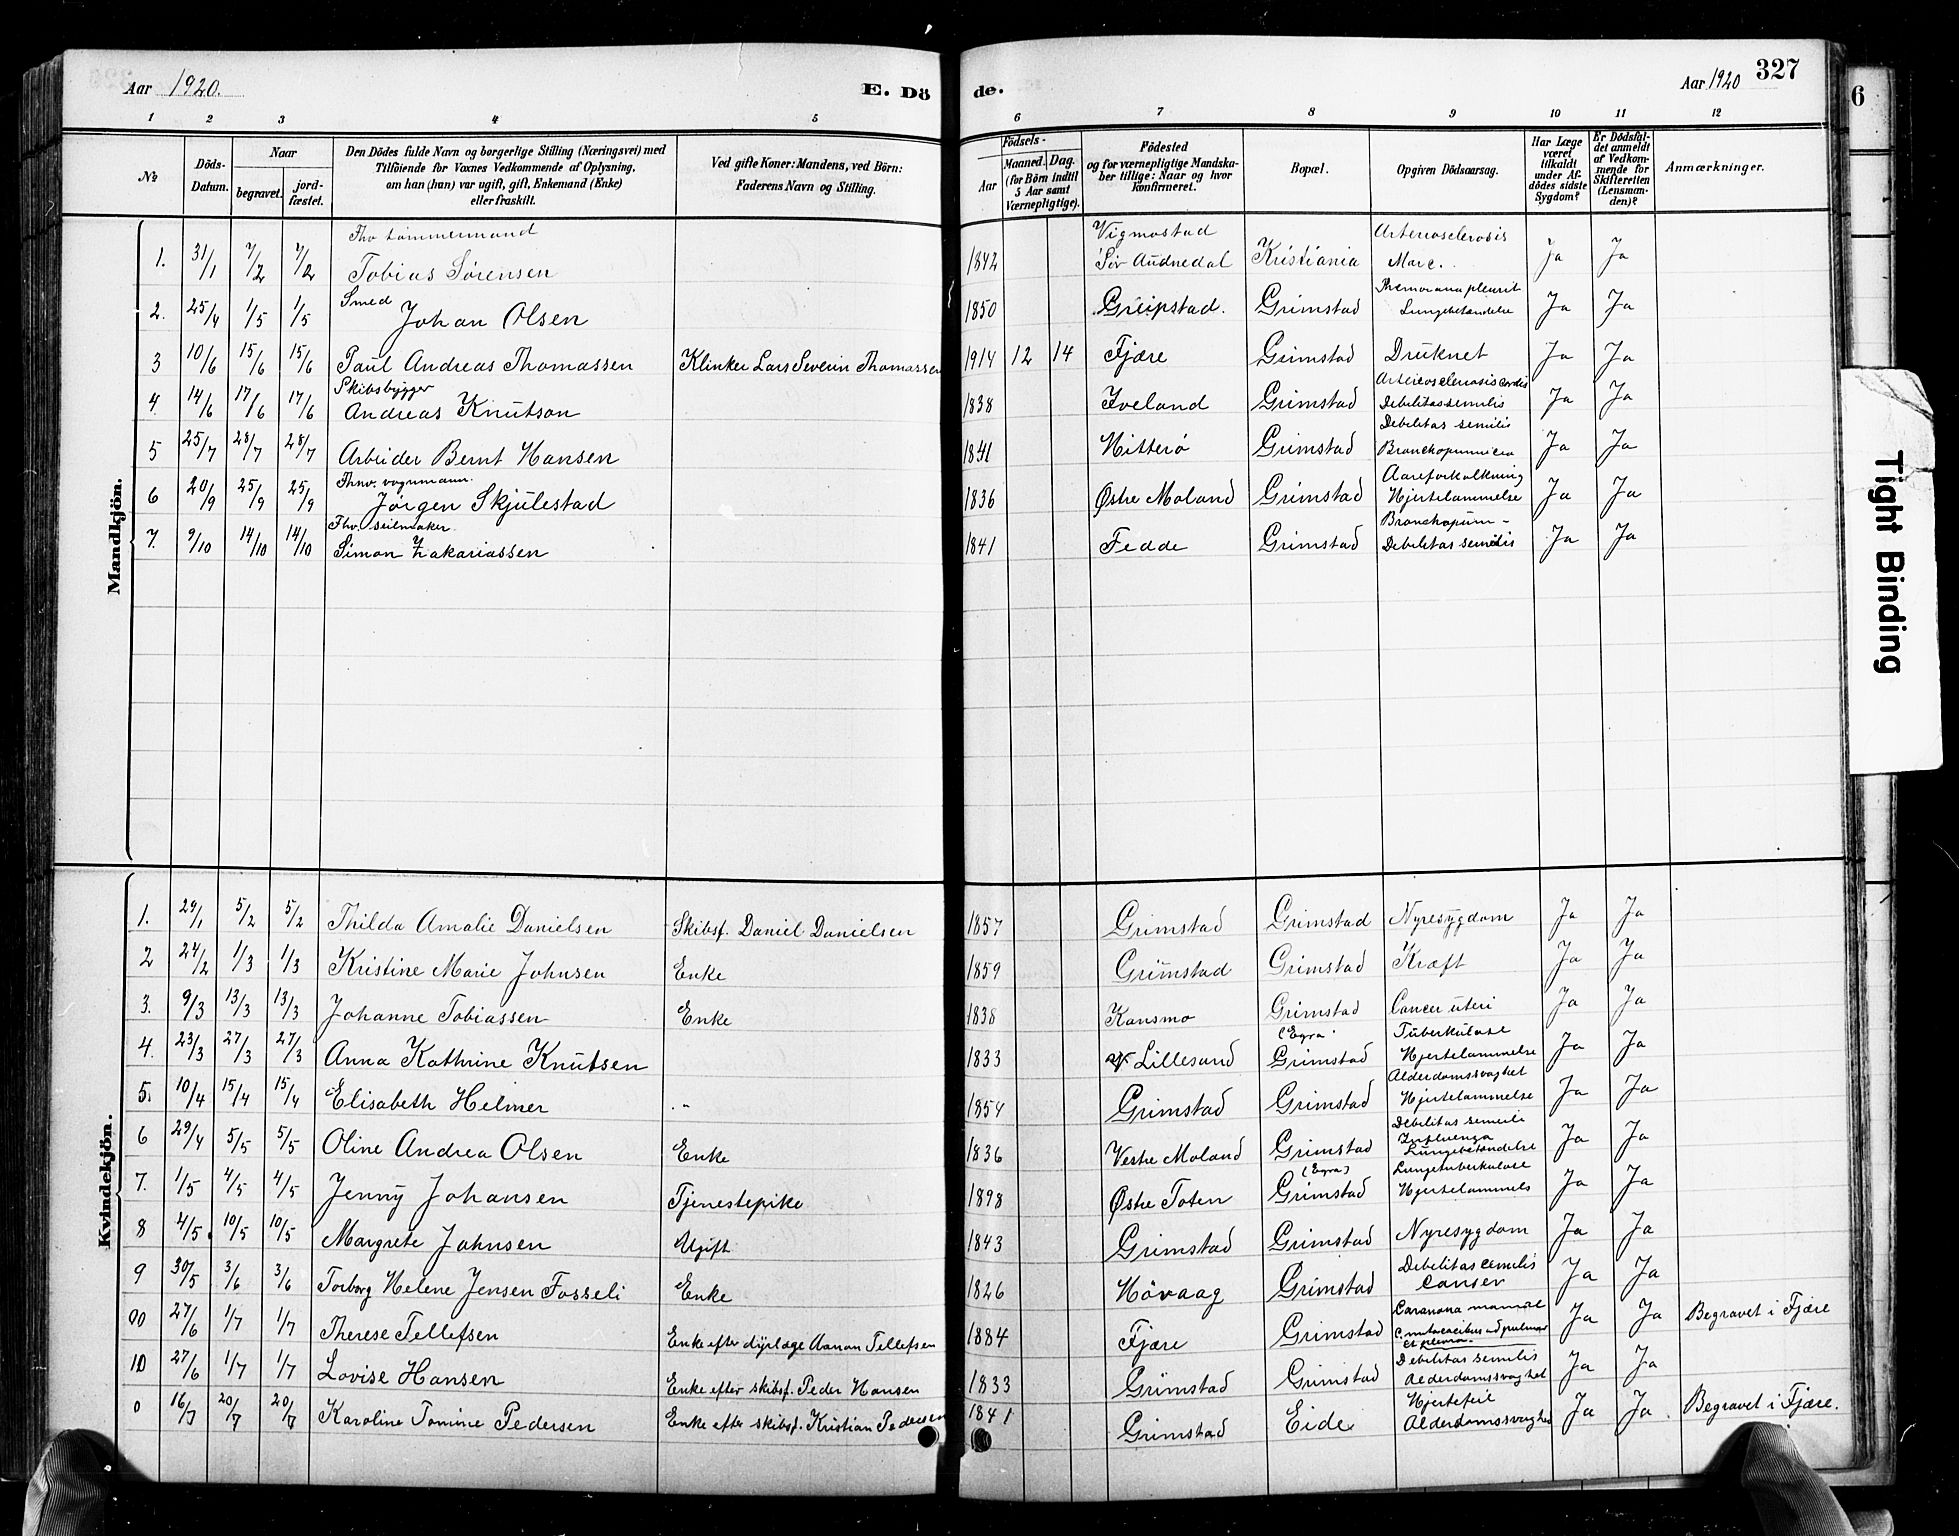 Aar 1920.
E. Dö
de.
Aar 1920
327
6
1 2 3 4 5
6 7 8 9 10 11 12
№
Döds-Datum.
Naar
begravet.
jord-fæstet.
Den Dödes fulde Navn og borgerlige Stilling (Næringsvei) med
Tilföiende for Voxnes Vedkommende af Oplysning,
om han (hun) var ugift, gift, Enkemand (Enke)
eller fraskilt.
Ved gifte Koner: Mandens, ved Börn:
Faderens Navn og Stilling.
Födsels-
Aar
Maaned. Dag.
(for Börn indtil
5 Aar samt
Værnepligtige).
Födested
og for værnepligtige Mandska-
ber tillige: Naar og hvor
konfirmeret.
Bopæl.
Opgiven Dödsaarsag.
Har Læge
været
tilkaldt
under Af-
dödes sidste
Sygdom?
Er Dödsfal-
det anmeldt
af Vedkom-
mende for
Skifteretten
(Lensman-
den)?
Anmærkninger.
Mandkjön.
Fhv tømmermand Vigmostad Arteriosclerosis
1. 31/1 7/2 7/2 Tobias Sørensen 1842 Sør Audnedal Kristiania Marc. Ja Ja
Smed pleurit
2. 25/4 1/5 1/5 Johan Olsen 1850 Greipstad. Grimstad Lungebetændelse Ja Ja
3 10/6 15/6 15/6 Paul Andreas Thomassen Klinker Lars Severin Thomassen 1914 12 14 Fjære Grimstad Druknet Ja Ja
Skibsbygger Arterosclerosis cordis
4. 14/6 17/6 17/6 Andreas Knutson 1838 Iveland Grimstad Debilitas semilis Ja Ja
Debilitas semilis
5 25/7 28/7 28/7 Arbeider Bernt Hansen 1841 Hitterø Grimstad Ja Ja
Fhnv. vognmann. Aareforkalkning
6 20/9 25/9 25/9 Jørgen Skjulestad 1836 Østre Moland Grimstad Hjertelammelse Ja Ja
Fhv. seilmaker. Bronchopum-
7. 9/10 14/10 14/10 Simon Zakariassen 1841 Fedde Grimstad Debilitas semilis Ja Ja
Kvindekjön.
1. 29/1 5/2 5/2 Thilda Amalie Danielsen Skibsf. Daniel Danielsen 1857 Grimstad Grimstad Nyresygdom Ja Ja
2 24/2 1/3 1/3 Kristine Marie Johnsen Enke 1859 Grimstad Grimstad Kræft Ja Ja
3. 9/3 13/3 13/3 Johanne Tobiassen Enke 1838 Konsmo Grimstad Cancer uteri Ja Ja
(Egra) Tuberkulose
4. 23/3 27/3 27/3 Anna Kathrine Knutsen 1833 Lillesand Grimstad Hjertelammelse Ja Ja
Alderdomssvaghet
5. 10/4 15/4 15/4 Elisabeth Helmer .- 1854 Grimstad Grimstad Hjertelammelse Ja Ja
Debilitas semili
Influenza
6 29/4 5/5 5/5 Oline Andrea Olsen Enke 1836 Vestre Moland Grimstad Lungebetændelse Ja Ja
(Egra) Lungetuberkulose
7. 1/5 4/5 4/5 Jenny Johansen Tjenestepike 1898 Østre Toten Grimstad Hjertelammels Ja Ja
8 4/5 10/5 10/5 Margrete Johnsen Ugift 1843 Grimstad Grimstad Nyresygdom Ja Ja
Debilitas semilis
9 30/5 3/6 3/6 Torborg Helene Jensen Fosseli Enke 1826 Høvaag Grimstad Canser Ja Ja
00 27/6 1/7 1/7 Therese Tellefsen Enke efter dyrlæge Aanon Tellefsen 1884 Fjære Grimstad Ja Ja Begravet i Fjære
Debilitas semilis
10 27/6 1/7 1/7 Lovise Hansen Enke efter skibsf. Peder Hansen 1833 Grimstad Grimstad Alderdomssvaghet Ja Ja
Hjertefeil
0 16/7 20/7 20/7 Karoline Tomine Pedersen Enke efter skibsf. Kristian Pedersen 1841 Grimstad Eide Alderdomssvaghed Ja Ja Begravet i Fjære.
Tight Binding